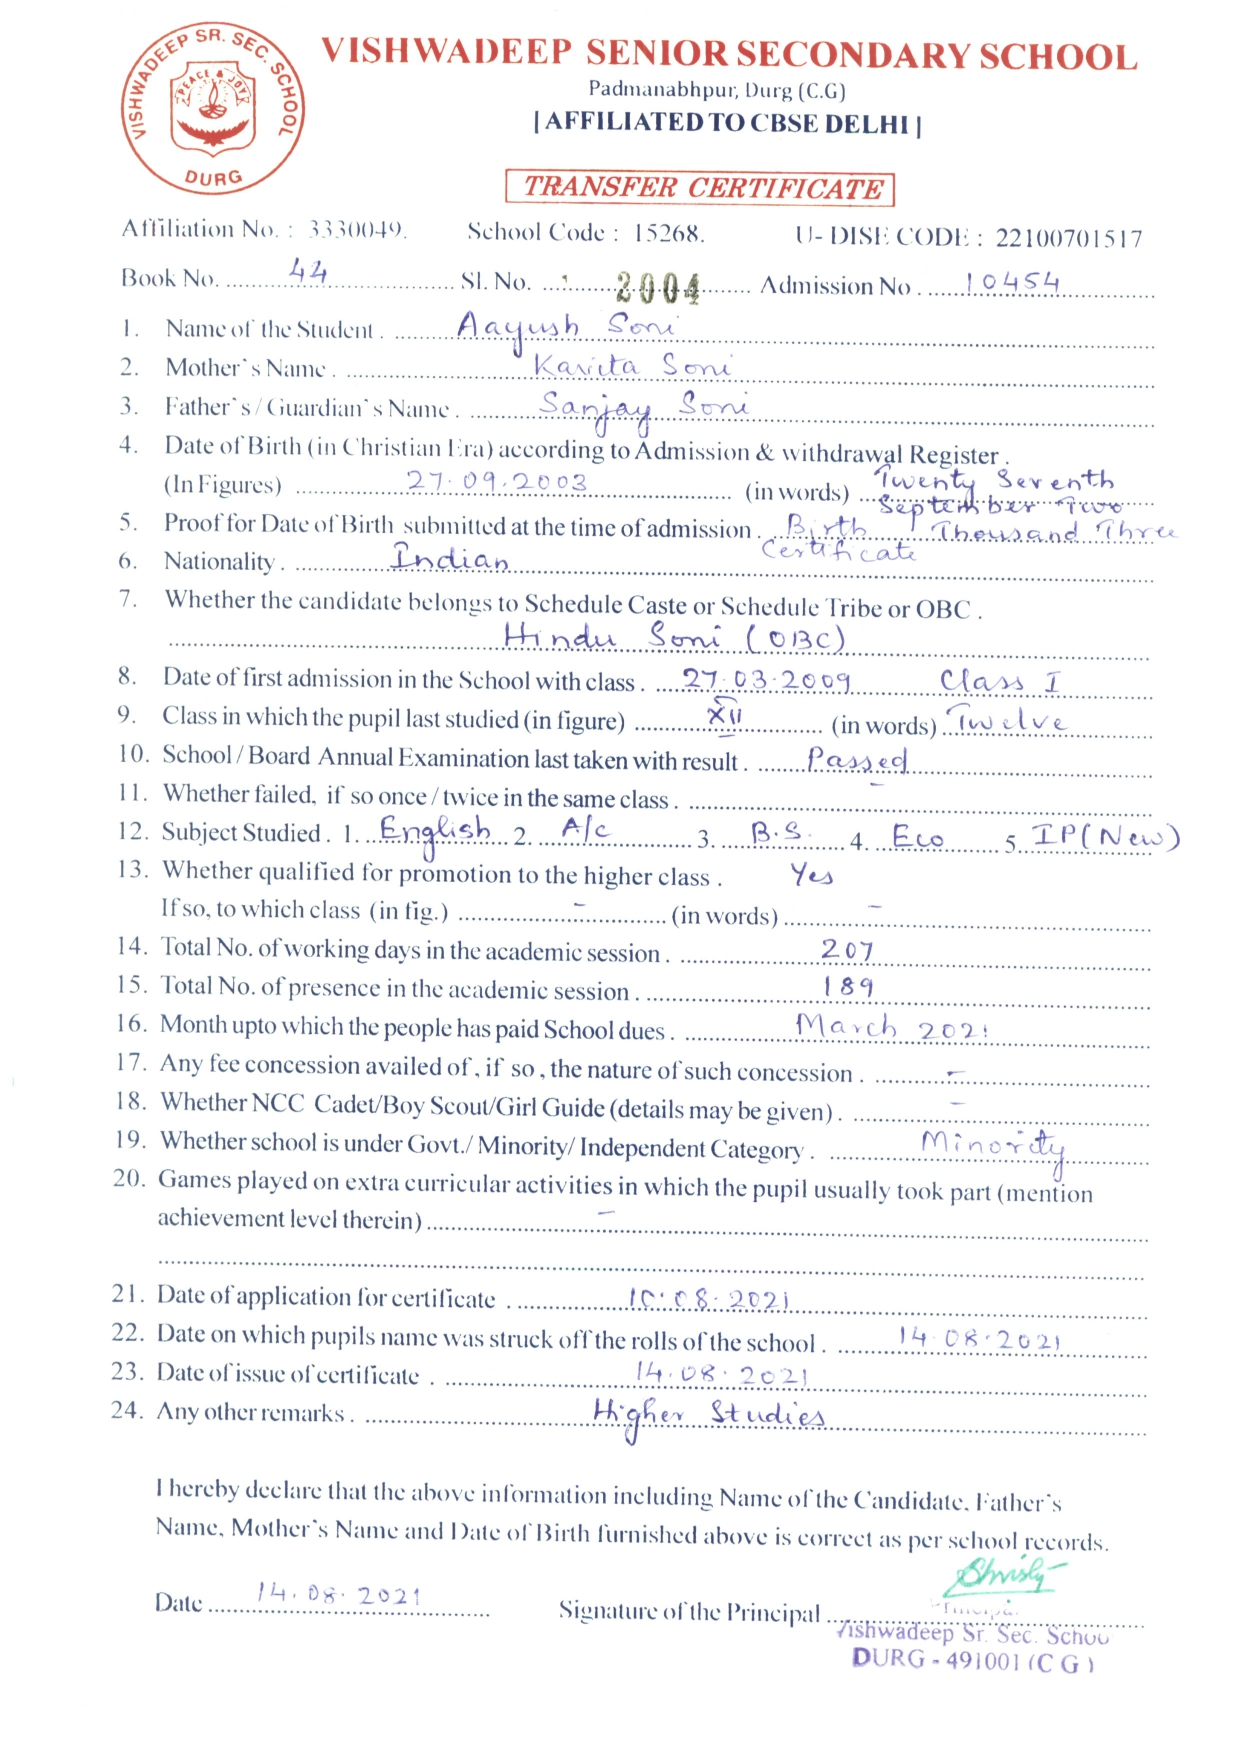 VISHWADEEP SR. SEC. SCHOOL
PEACE & JOY
DURG
VISHWADEEP SENIOR SECONDARY SCHOOL
Padmanabhpur, Durg (C.G)
| AFFILIATED TO CBSE DELHI |
TRANSFER CERTIFICATE
Affiliation No. : 3330049. School Code : 15268. U- DISE CODE : 22100701517
Book No. 44 Sl. No. 2004 Admission No . 10454
1. Name of the Student . Aayush Soni
2. Mother`s Name . Kavita Soni
3. Father`s / Guardian`s Name . Sanjay Soni
4. Date of Birth (in Christian Era) according to Admission & withdrawal Register .
(In Figures) 27.09.2003 (in words) Twenty Seventh
September Two
Thousand Three
5. Proof for Date of Birth submitted at the time of admission . Birth
Certificate
6. Nationality . Indian
7. Whether the candidate belongs to Schedule Caste or Schedule Tribe or OBC .
Hindu Soni (OBC)
8. Date of first admission in the School with class . 27.03.2009 Class I
9. Class in which the pupil last studied (in figure) XII (in words) Twelve
10. School / Board Annual Examination last taken with result . Passed
11. Whether failed, if so once / twice in the same class . -
12. Subject Studied . 1. English 2. A/c 3. B.S. 4. Eco 5. IP(New)
13. Whether qualified for promotion to the higher class . Yes
If so, to which class (in fig.) - (in words) -
14. Total No. of working days in the academic session . 207
15. Total No. of presence in the academic session . 189
16. Month upto which the people has paid School dues . March 2021
17. Any fee concession availed of , if so , the nature of such concession . -
18. Whether NCC Cadet/Boy Scout/Girl Guide (details may be given) . -
19. Whether school is under Govt./ Minority/ Independent Category . Minority
20. Games played on extra curricular activities in which the pupil usually took part (mention
achievement level therein) -
21. Date of application for certificate . 10.08.2021
22. Date on which pupils name was struck off the rolls of the school . 14.08.2021
23. Date of issue of certificate . 14.08.2021
24. Any other remarks . Higher Studies
I hereby declare that the above information including Name of the Candidate, Father`s
Name, Mother`s Name and Date of Birth furnished above is correct as per school records.
Date 14.08.2021 Signature of the Principal
Principal
Vishwadeep Sr. Sec. School
DURG - 491001 (C G)